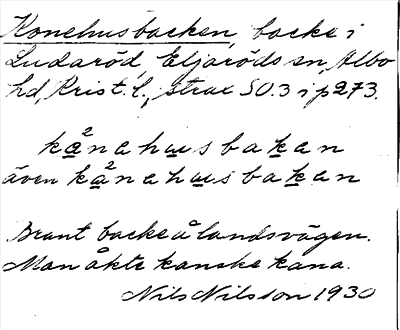 Konehusbacken, backe i
Ludaröd, Eljaröds sn, Albo
hd, Krist. l., strax SO. 3 i p 273.
kånahusbakan
även kånahusbakan
Brant backe å landsvägen.
Man åkte kanske kana.
Nils Nilsson 1930